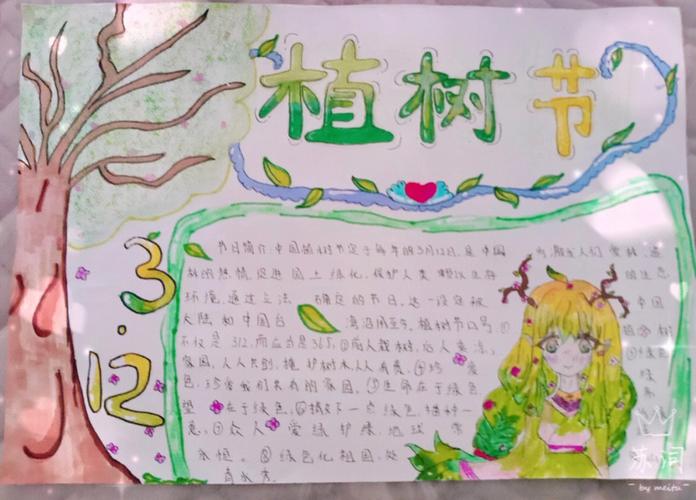 植树节
3.12
节日简介:中国植树节定于每年的3月12日,是中国 为激发人们爱林、造
林的热情,促进国土绿化,保护人类赖以生存 的生态
环境,通过立法 确定的节日,这一设定被 中国
大陆和中国台 湾沿用至今,植树节口号:① 植树
不仅是312,而应当是365,②前人栽树,后人乘凉,
家园,人人共创,植护树木,人人有责,④珍爱 绿
色,珍爱我们共有的家园,⑤生命在于绿色
望 在于绿色,⑥ 一点绿色,播种一
⑦众人 爱绿护绿,地球常
永恒。⑧绿色化祖国,处
青山水秀
by meitu